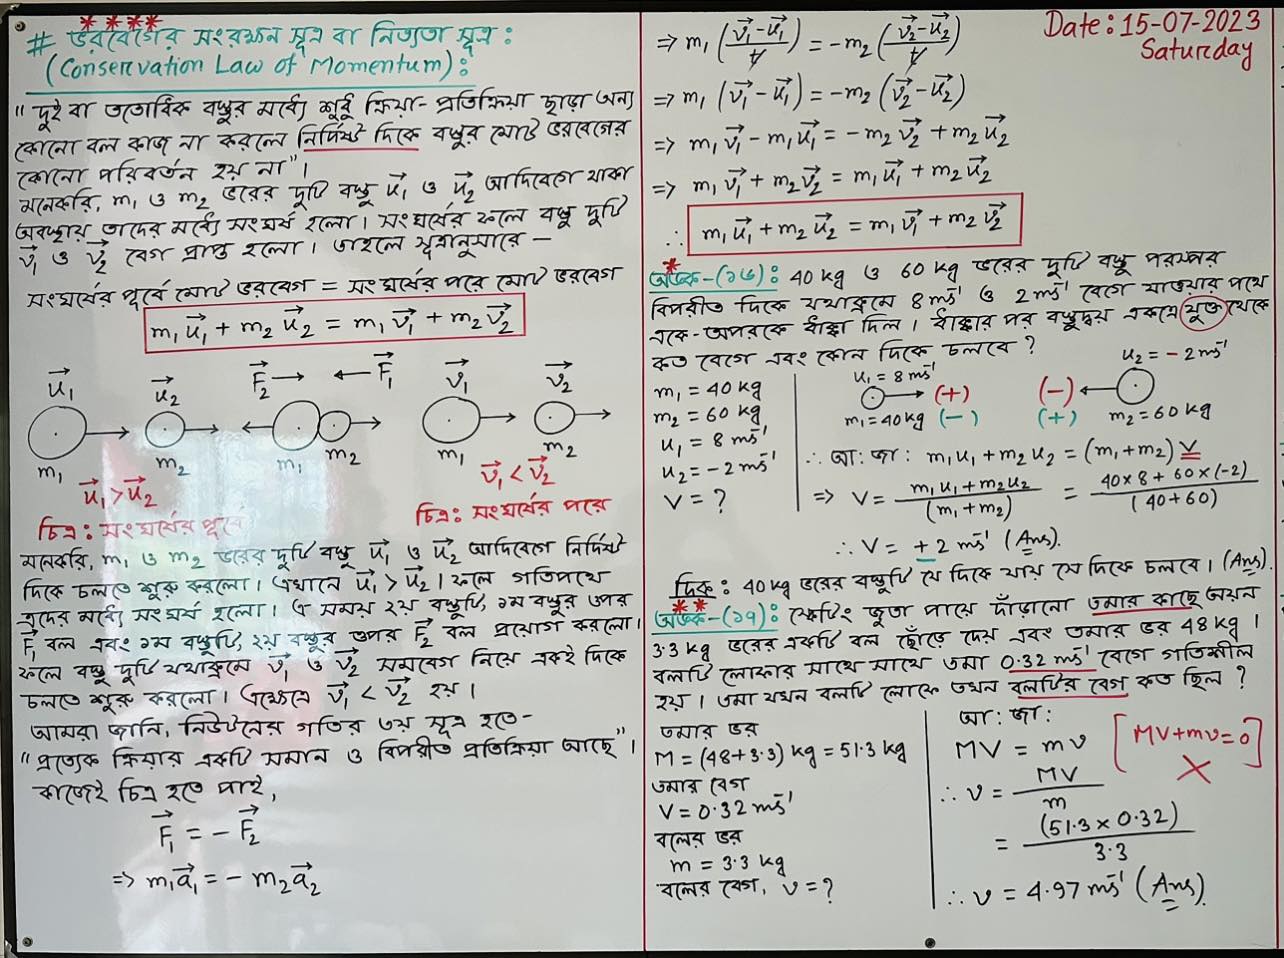 # ভরবেগের সংরক্ষন সূত্র বা নিত্যতা সূত্র :
(Conservation Law of Momentum) :
"দুই বা ততোধিক বস্তুর মধ্যে শুধু ক্রিয়া-প্রতিক্রিয়া ছাড়া অন্য
কোনো বল কাজ না করলে নির্দিষ্ট দিকে বস্তুর মোট ভরবেগের
কোনো পরিবর্তন হয় না"।
মনেকরি, m₁ ও m₂ ভরের দুটি বস্তু u⃗₁ ও u⃗₂ আদিবেগে থাকা
অবস্থায় তাদের মধ্যে সংঘর্ষ হলো। সংঘর্ষের ফলে বস্তু দুটি
v⃗₁ ও v⃗₂ বেগ প্রাপ্ত হলো। তাহলে সূত্রানুসারে –
সংঘর্ষের পূর্বে মোট ভরবেগ = সংঘর্ষের পরে মোট ভরবেগ
m₁u⃗₁ + m₂u⃗₂ = m₁v⃗₁ + m₂v⃗₂
u⃗₁ u⃗₂ F⃗₂ F⃗₁ v⃗₁ v⃗₂
m₁ m₂ m₁ m₂ m₁ m₂
u⃗₁ > u⃗₂ v⃗₁ < v⃗₂
চিত্র : সংঘর্ষের পূর্বে চিত্র : সংঘর্ষের পরে
মনেকরি, m₁ ও m₂ ভরের দুটি বস্তু u⃗₁ ও u⃗₂ আদিবেগে নির্দিষ্ট
দিকে চলতে শুরু করলো। এখানে u⃗₁ > u⃗₂। ফলে গতিপথে
এদের মধ্যে সংঘর্ষ হলো। এ সময় ২য় বস্তুটি, ১ম বস্তুর ওপর
F⃗₁ বল এবং ১ম বস্তুটি, ২য় বস্তুর ওপর F⃗₂ বল প্রয়োগ করলো।
ফলে বস্তু দুটি যথাক্রমে v⃗₁ ও v⃗₂ সমবেগ নিয়ে একই দিকে
চলতে শুরু করলো। এক্ষেত্রে v⃗₁ < v⃗₂ হয়।
আমরা জানি, নিউটনের গতির ৩য় সূত্র হতে–
"প্রত্যেক ক্রিয়ার একটি সমান ও বিপরীত প্রতিক্রিয়া আছে"।
কাজেই চিত্র হতে পাই,
F⃗₁ = – F⃗₂
⇒ m₁a⃗₁ = – m₂a⃗₂
Date : 15-07-2023
Saturday
⇒ m₁ ((v⃗₁–u⃗₁)/t) = –m₂ ((v⃗₂–u⃗₂)/t)
⇒ m₁ (v⃗₁–u⃗₁) = –m₂ (v⃗₂–u⃗₂)
⇒ m₁v⃗₁ – m₁u⃗₁ = –m₂v⃗₂ + m₂u⃗₂
⇒ m₁v⃗₁ + m₂v⃗₂ = m₁u⃗₁ + m₂u⃗₂
∴ m₁u⃗₁ + m₂u⃗₂ = m₁v⃗₁ + m₂v⃗₂
অংক–(১৬) : 40 kg ও 60 kg ভরের দুটি বস্তু পরস্পর
বিপরীত দিকে যথাক্রমে 8 ms⁻¹ ও 2 ms⁻¹ বেগে যাওয়ার পথে
একে-অপরকে ধাক্কা দিল। ধাক্কার পর বস্তুদ্বয় একত্রে যুক্ত থেকে
কত বেগে এবং কোন দিকে চলবে ?
m₁ = 40 kg
m₂ = 60 kg
u₁ = 8 ms⁻¹
u₂ = –2 ms⁻¹
V = ?
u₁ = 8 ms⁻¹ u₂ = – 2 ms⁻¹
(+) (–)
m₁ = 40 kg (–) (+) m₂ = 60 kg
∴ আ: জা: m₁u₁ + m₂u₂ = (m₁+m₂) V
⇒ V = (m₁u₁ + m₂u₂)/(m₁+m₂) = (40×8 + 60×(-2))/(40+60)
∴ V = +2 ms⁻¹ (Ans).
দিক : 40 kg ভরের বস্তুটি যে দিকে যায় সে দিকে চলবে। (Ans).
অংক–(১৭) : স্কেটিং জুতা পায়ে দাঁড়ানো তমার কাছে অয়ন
3.3 kg ভরের একটি বল ছোঁড়ে দেয় এবং তমার ভর 48 kg।
বলটি লোফার সাথে সাথে তমা 0.32 ms⁻¹ বেগে গতিশীল
হয়। তমা যখন বলটি লোফে তখন বলটির বেগ কত ছিল ?
তমার ভর
M = (48+3.3) kg = 51.3 kg
তমার বেগ
V = 0.32 ms⁻¹
বলের ভর
m = 3.3 kg
বলের বেগ, v = ?
আ: জা:
MV = mv [MV+mv=0]
∴ v = MV/m
= (51.3 × 0.32)/3.3
∴ v = 4.97 ms⁻¹ (Ans).